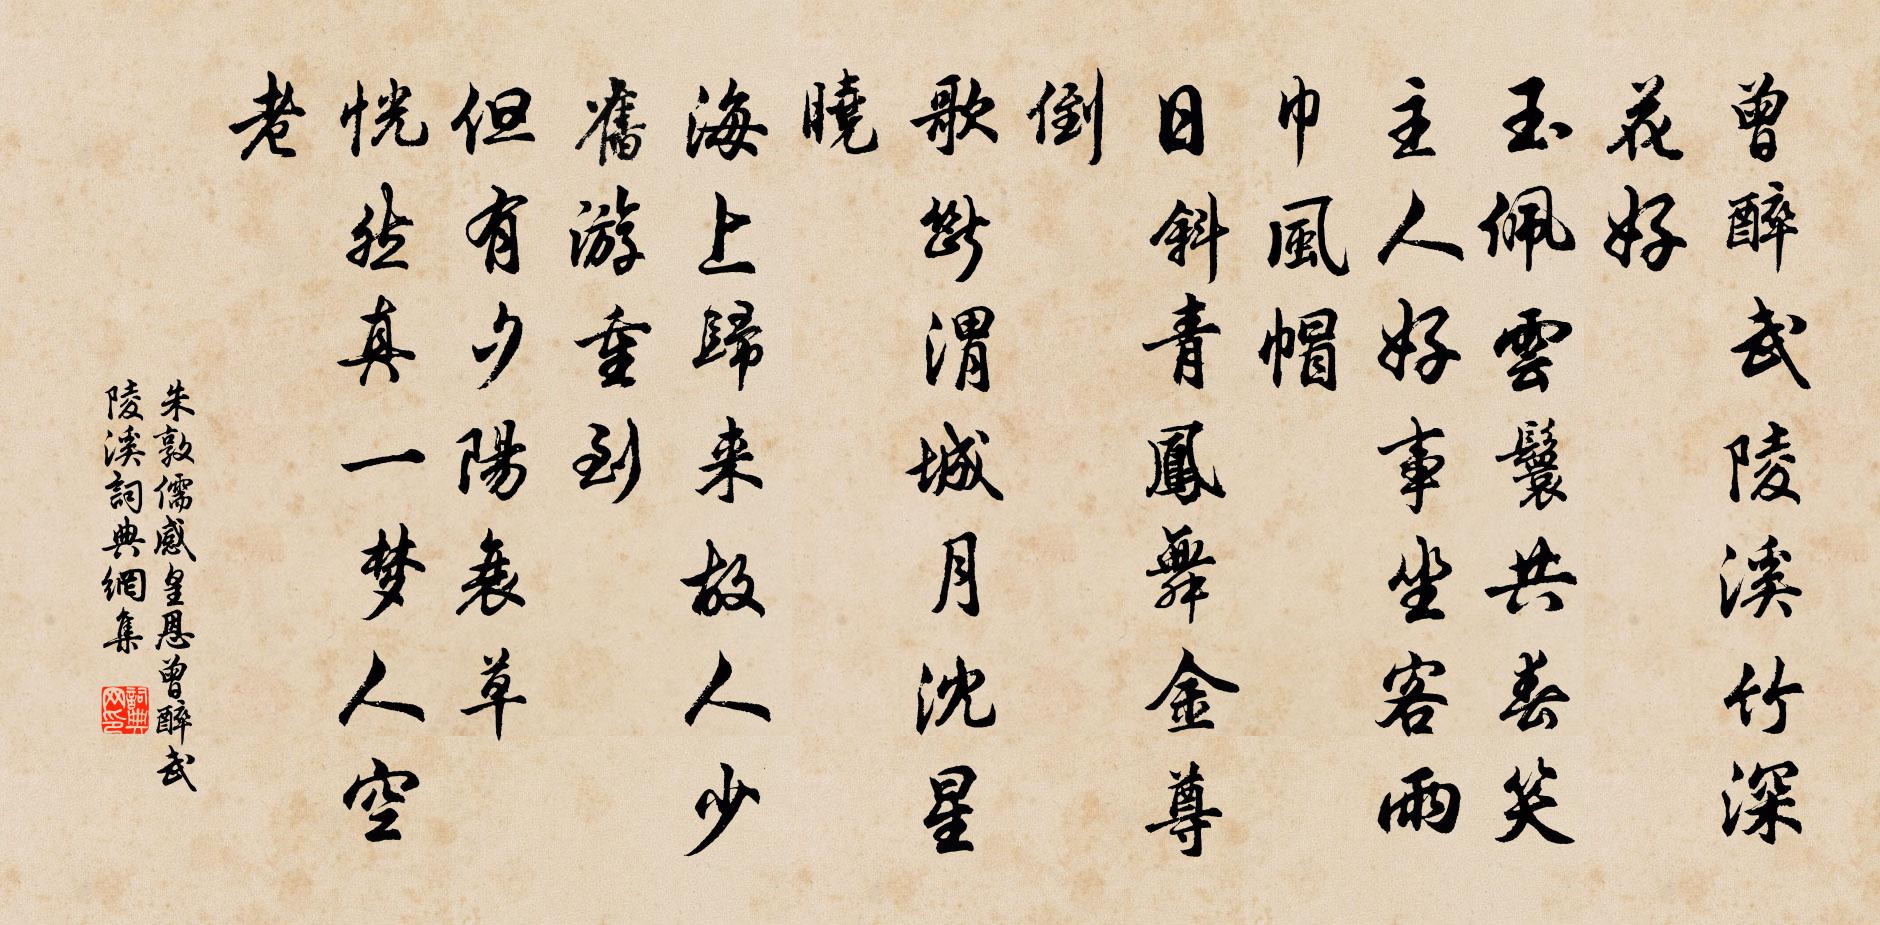 曾醉武陵溪竹深
花好
玉佩雲鬟共春笑
主人好事坐客雨
巾風帽
日斜青鳳舞金尊
倒
歌斷渭城月沈星
曉
海上歸来故人少
舊游重到
但有夕陽衰草
恍然真一梦人空
老
朱敦儒感皇恩曾醉武
陵溪詞典網集
詞典网印